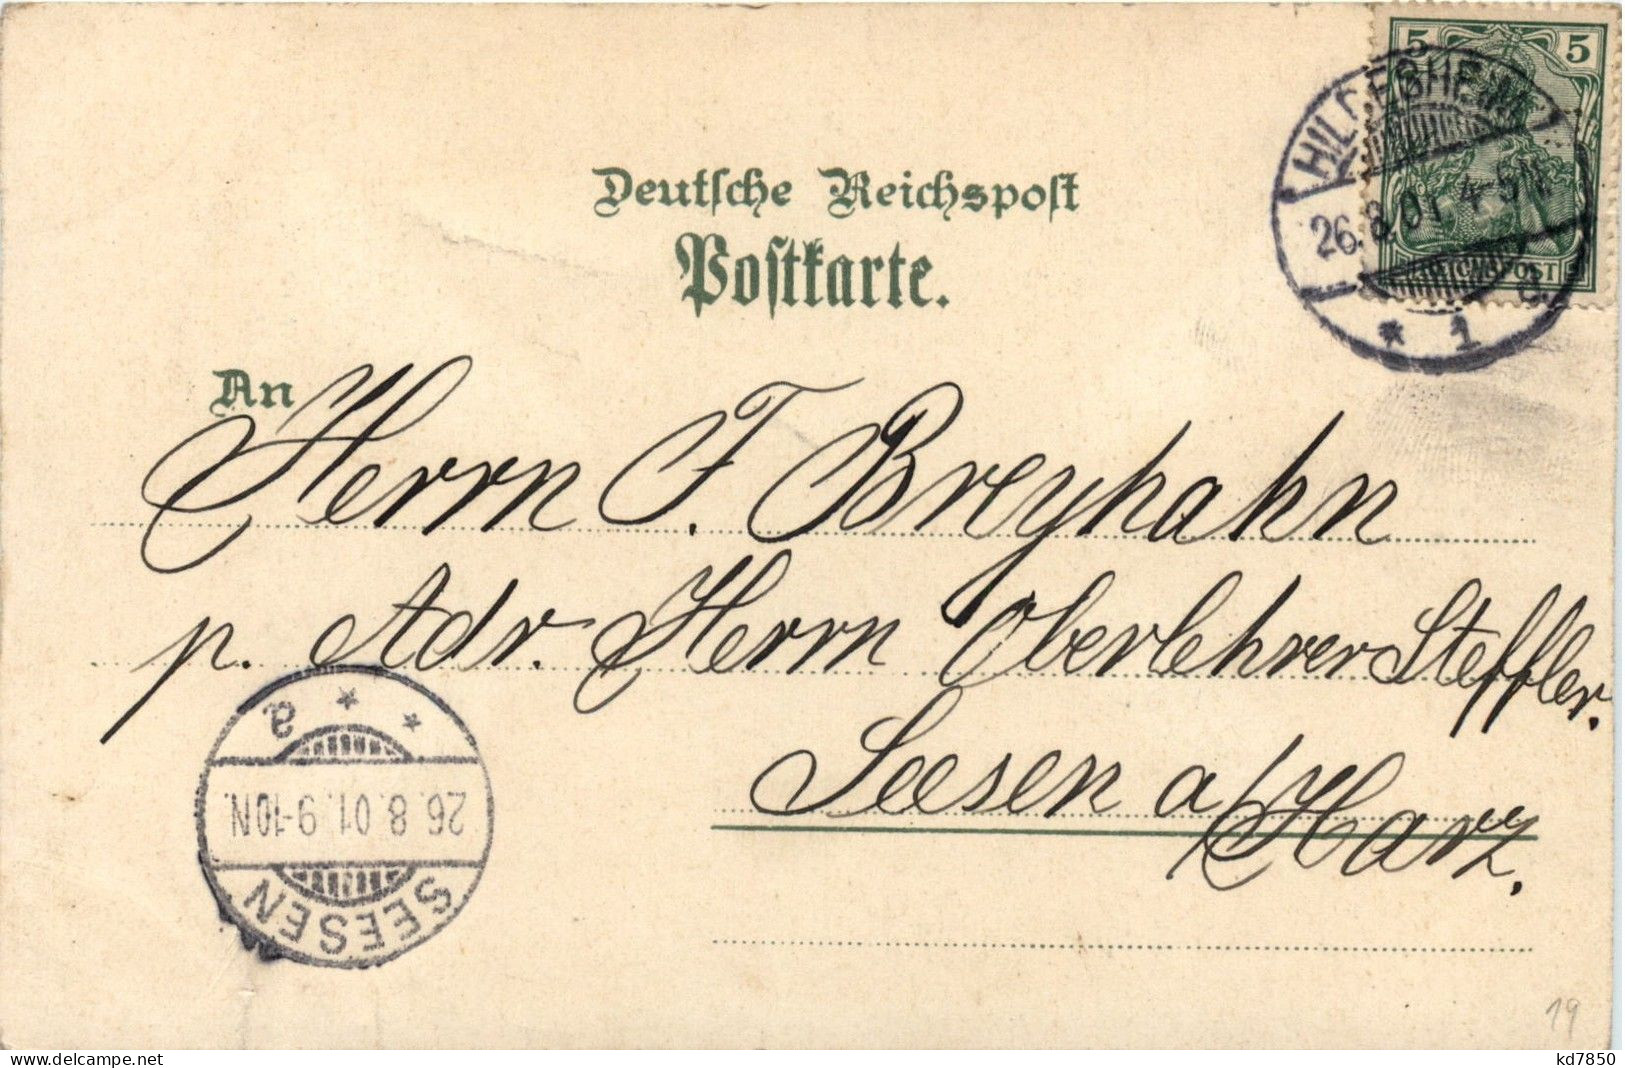 5 5
HILDESHEIM
26.8.01 4-5N
REICHSPOST
* 1 a.
Deutsche Reichspost
Postkarte.
An
Herrn F. Breyhahn
p. Adr. Herrn Oberlehrer Steffler.
Seesen a/Harz.
SEESEN
26.8.01.9-10N.
* * a
19
www.delcampe.net
kd7850